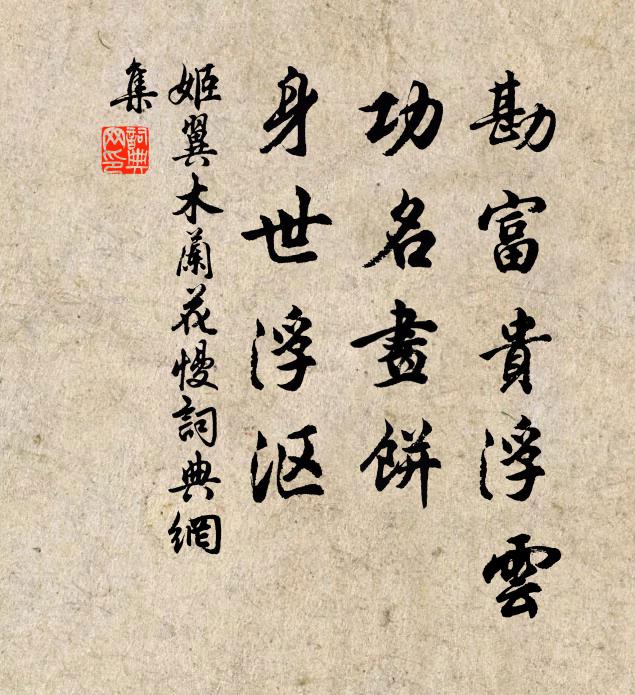 勘富貴浮雲
功名畫餅
身世浮沤
姬翼木蘭花慢詞典網
集
詞典
网印